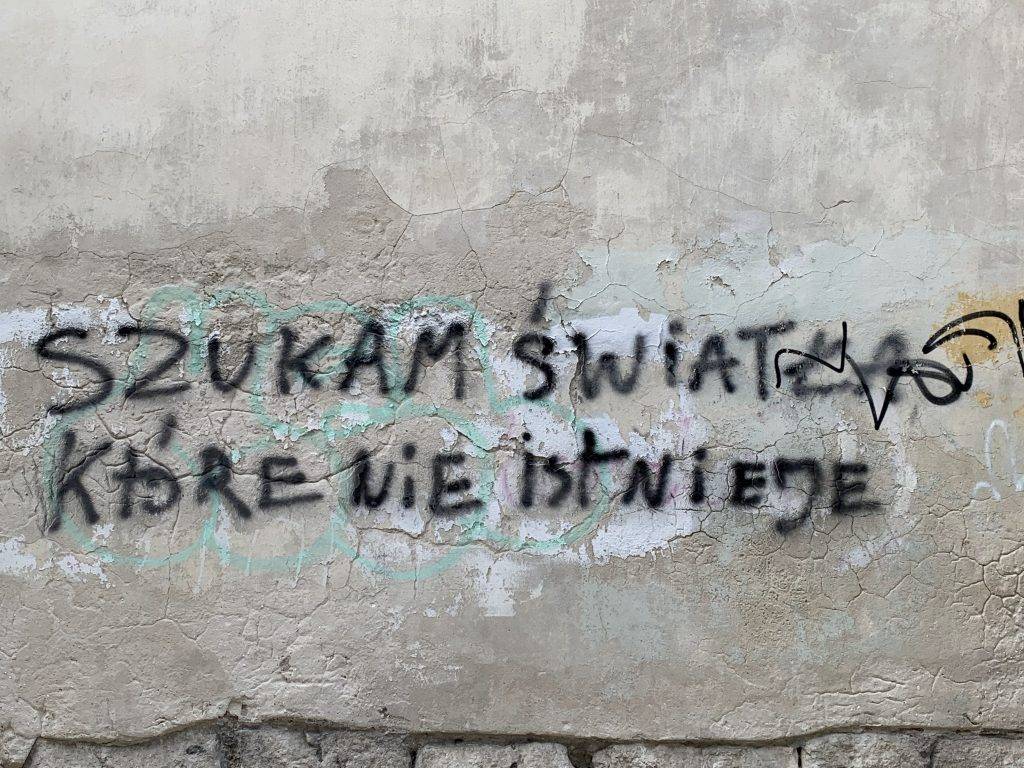 SZUKAM ŚWiATŁA
KTÓRE NiE iStNiEJE